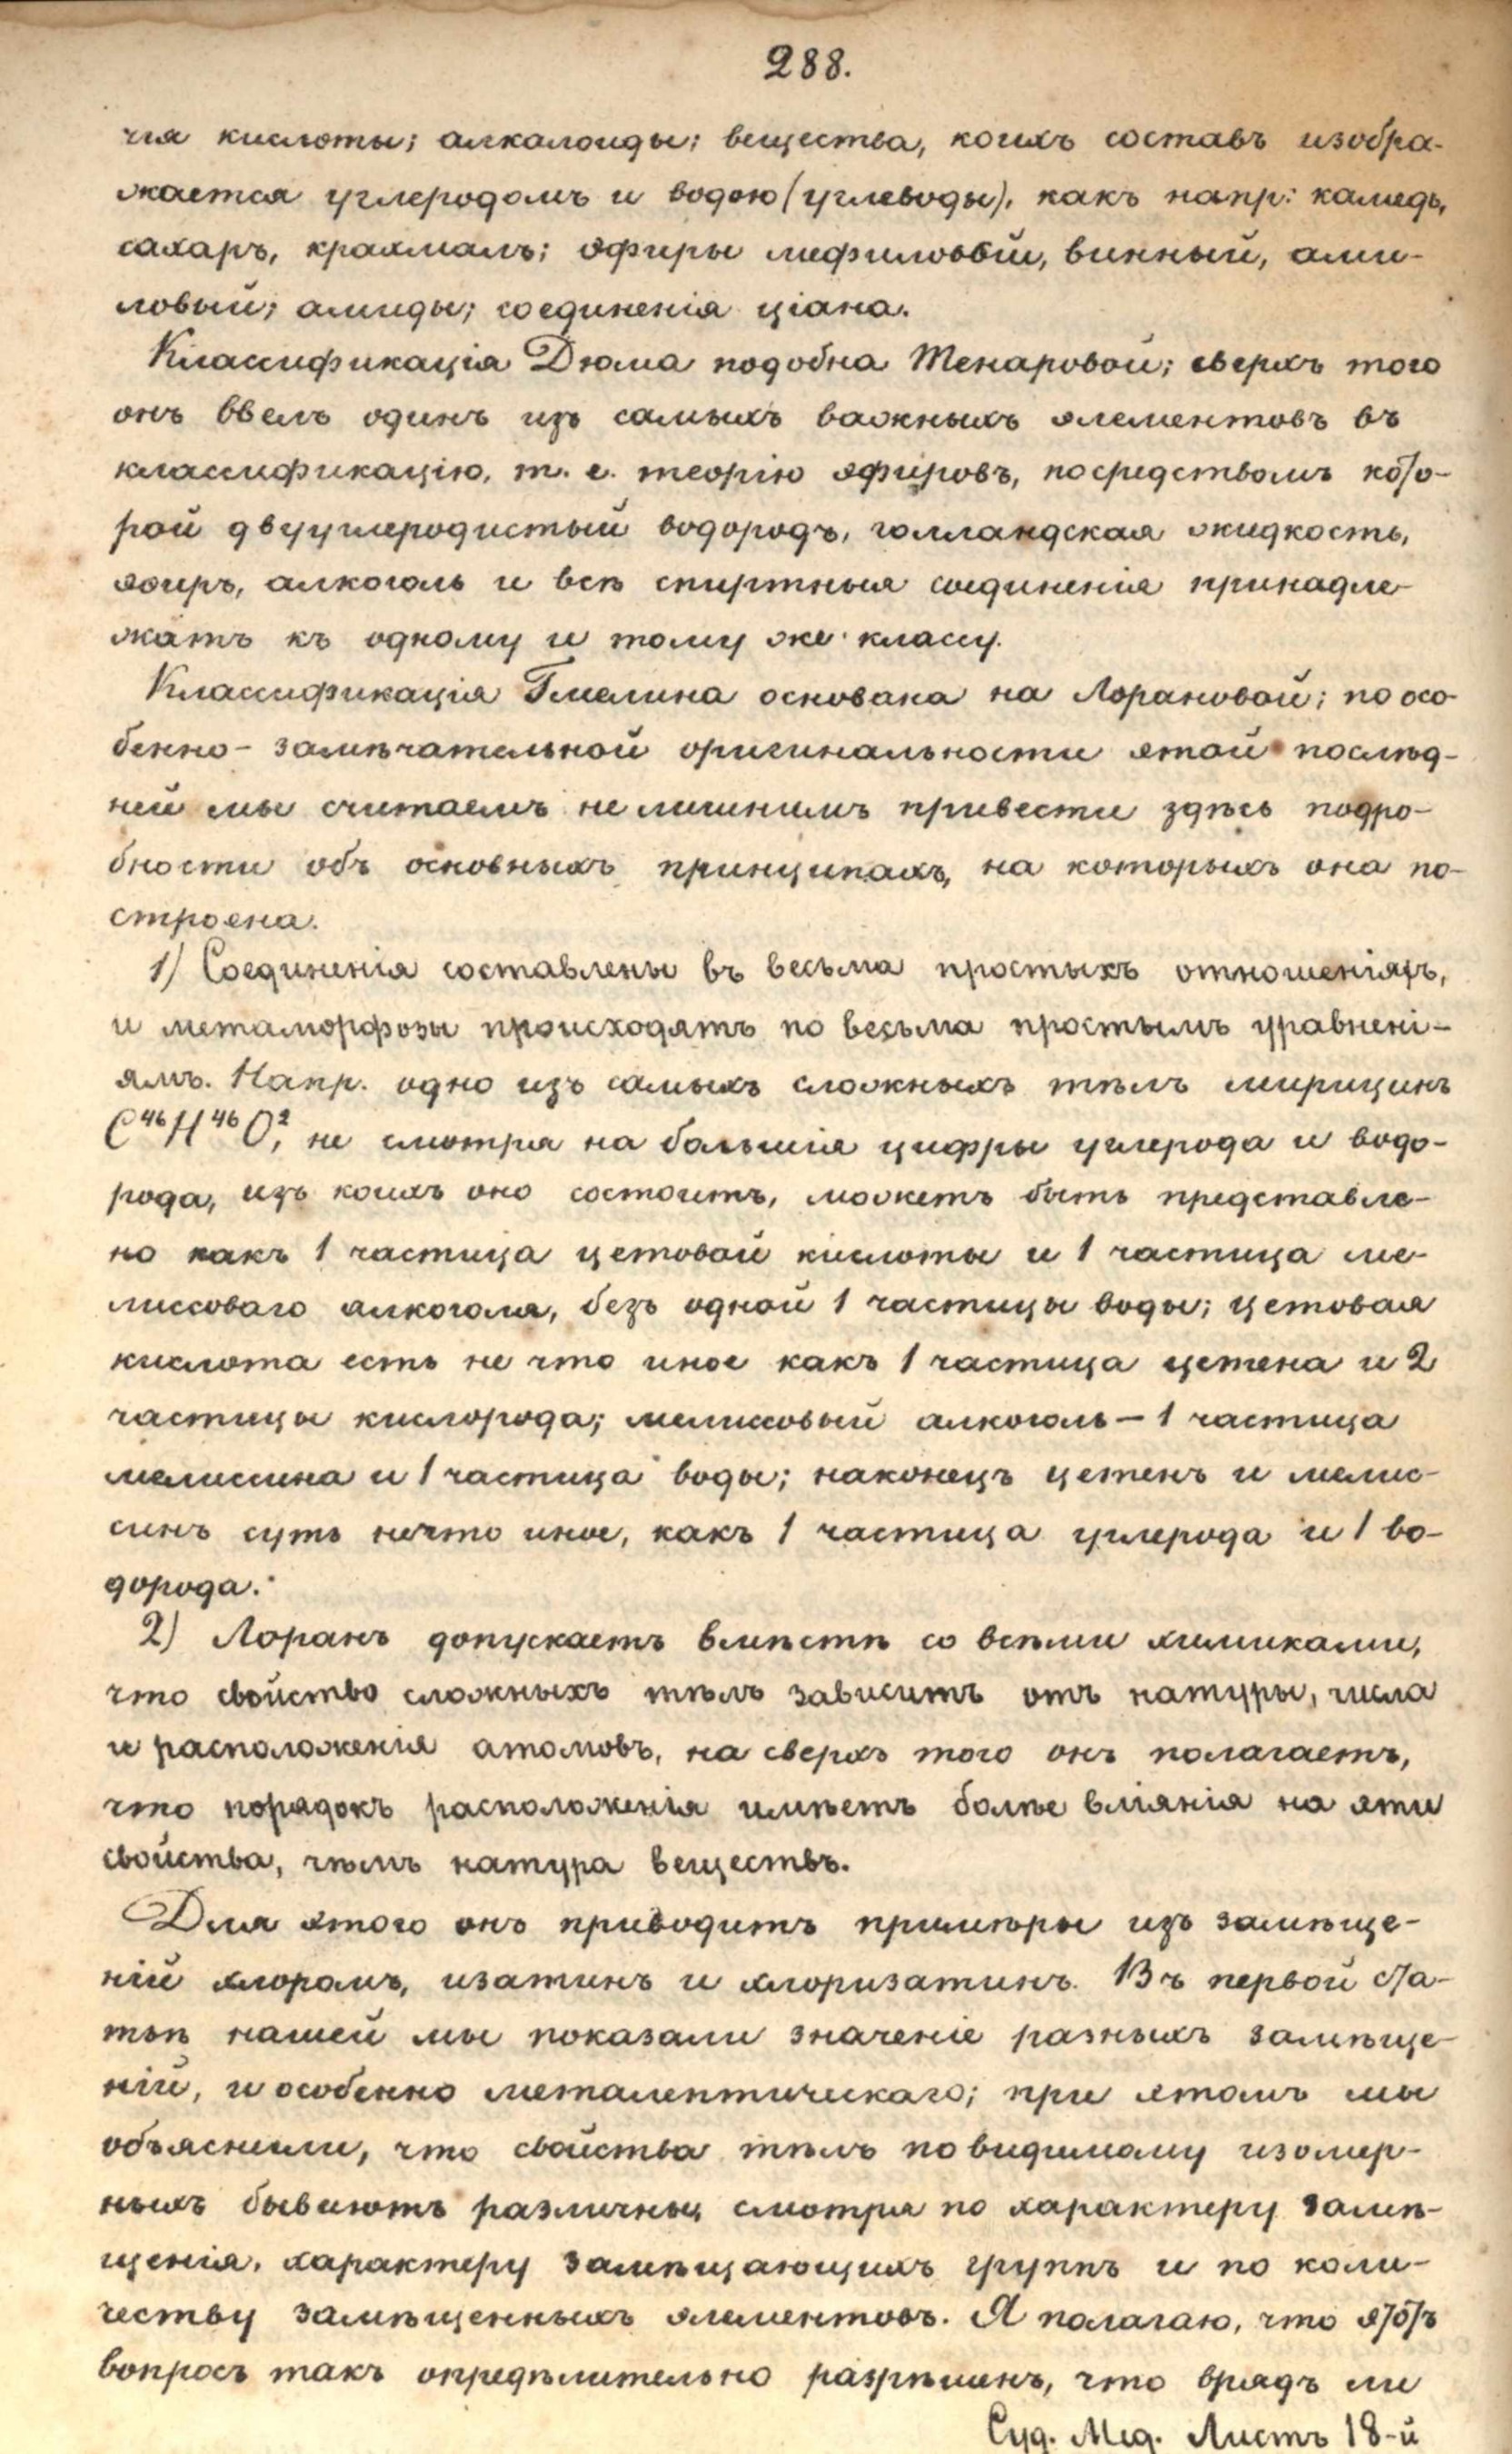 288.
чія кислоты; алкалоиды; вещества, коихъ составъ изобра-
жается углеродомъ и водою (углеводы), какъ напр: камедь,
сахаръ, крахмалъ; эфиры мефиловый, винный, ами-
ловый; амиды; соединенія ціана.
Классификація Дюма подобна Тенаровой; сверхъ того
онъ ввелъ одинъ изъ самыхъ важныхъ элементовъ въ
классификацію, т. е. теорію эфировъ, посредствомъ кото-
рой двууглеродистый водородъ, голландская жидкость,
эфиръ, алкоголь и всѣ спиртныя соединенія принадле-
жатъ къ одному и тому же классу.
Классификація Гмелина основана на Лорановой; по осо-
бенно-замѣчательной оригинальности этой послѣд-
ней мы считаемъ не лишнимъ привести здѣсь подро-
бности объ основныхъ принципахъ, на которыхъ она по-
строена.
1) Соединенія составлены въ весьма простыхъ отношеніяхъ,
и метаморфозы происходятъ по весьма простымъ уравнені-
ямъ. Напр. одно изъ самыхъ сложныхъ тѣлъ мирицинъ
C⁴⁶H⁴⁶O², не смотря на большія цифры углерода и водо-
рода, изъ коихъ оно состоитъ, можетъ быть представле-
но какъ 1 частица цетовой кислоты и 1 частица ме-
лиссоваго алкоголя, безъ одной 1 частицы воды; цетовая
кислота есть не что иное какъ 1 частица цетена и 2
частицы кислорода; мелиссовый алкоголь — 1 частица
мелиссина и 1 частица воды; наконецъ цетенъ и мелис-
синъ суть нечто иное, какъ 1 частица углерода и 1 во-
дорода.
2) Лоранъ допускаетъ вмѣстѣ со всѣми химиками,
что свойство сложныхъ тѣлъ зависитъ отъ натуры, числа
и расположенія атомовъ, на сверхъ того онъ полагаетъ,
что порядокъ расположенія имѣетъ болѣе вліянія на эти
свойства, чѣмъ натура веществъ.
Для этого онъ приводитъ примѣры изъ замѣще-
ній хлоромъ, изатинъ и хлоризатинъ. Въ первой ста-
тьѣ нашей мы показали значеніе разныхъ замѣще-
ній, и особенно металептическаго; при этомъ мы
объяснили, что свойства тѣлъ по видимому изомер-
ныхъ бываютъ различны, смотря по характеру замѣ-
щенія, характеру замѣщающихъ группъ и по коли-
честву замѣщенныхъ элементовъ. Я полагаю, что этотъ
вопросъ такъ опредѣлительно разрѣшенъ, что врядъ ли
Суд. Мед. Листъ 18-й